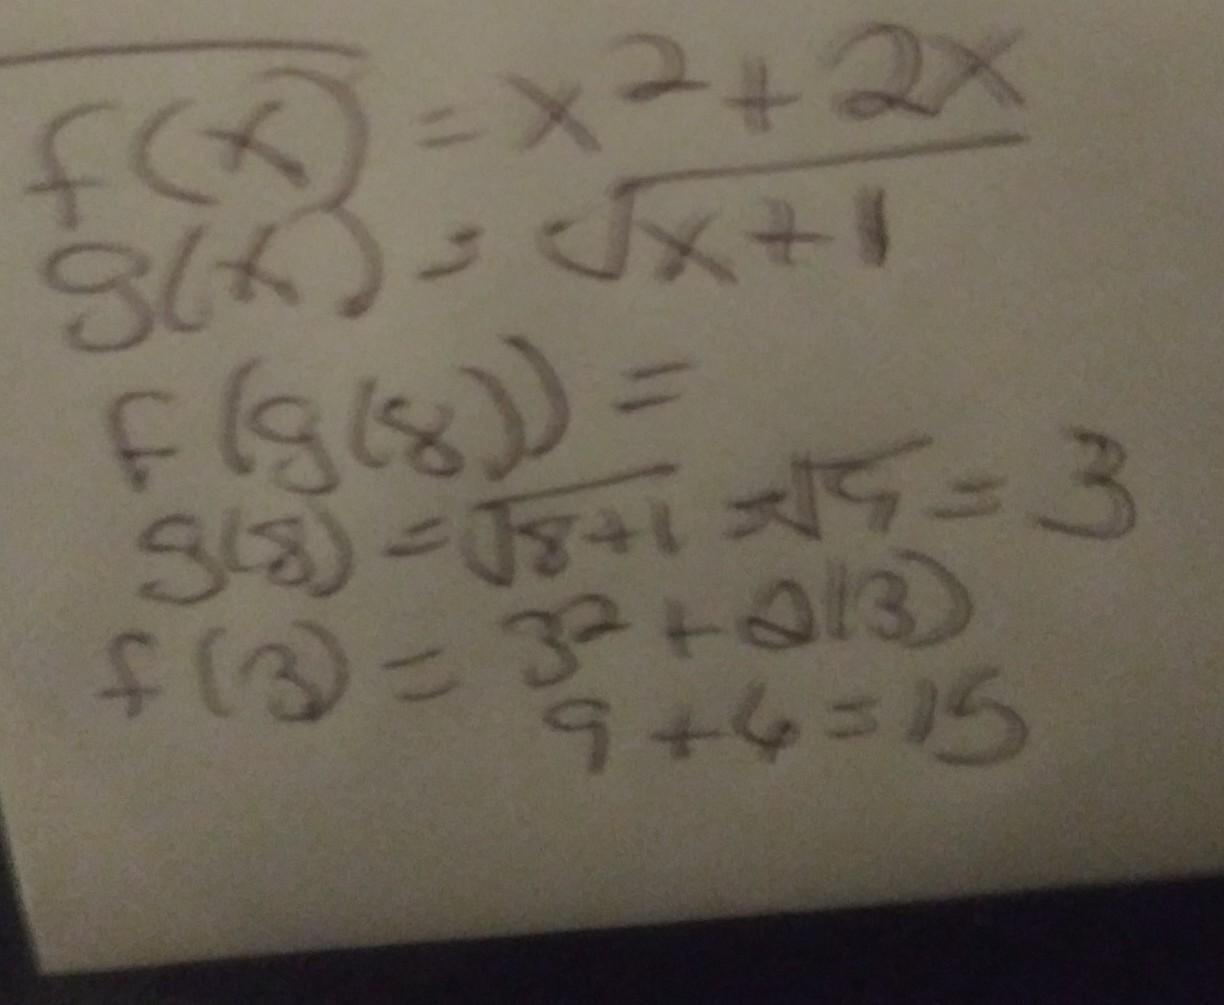 f(x) = x² + 2x
g(x) = √(x+1)
f(g(8)) =
g(8) = √(8+1) = √9 = 3
f(3) = 3² + 2(3)
9 + 6 = 15